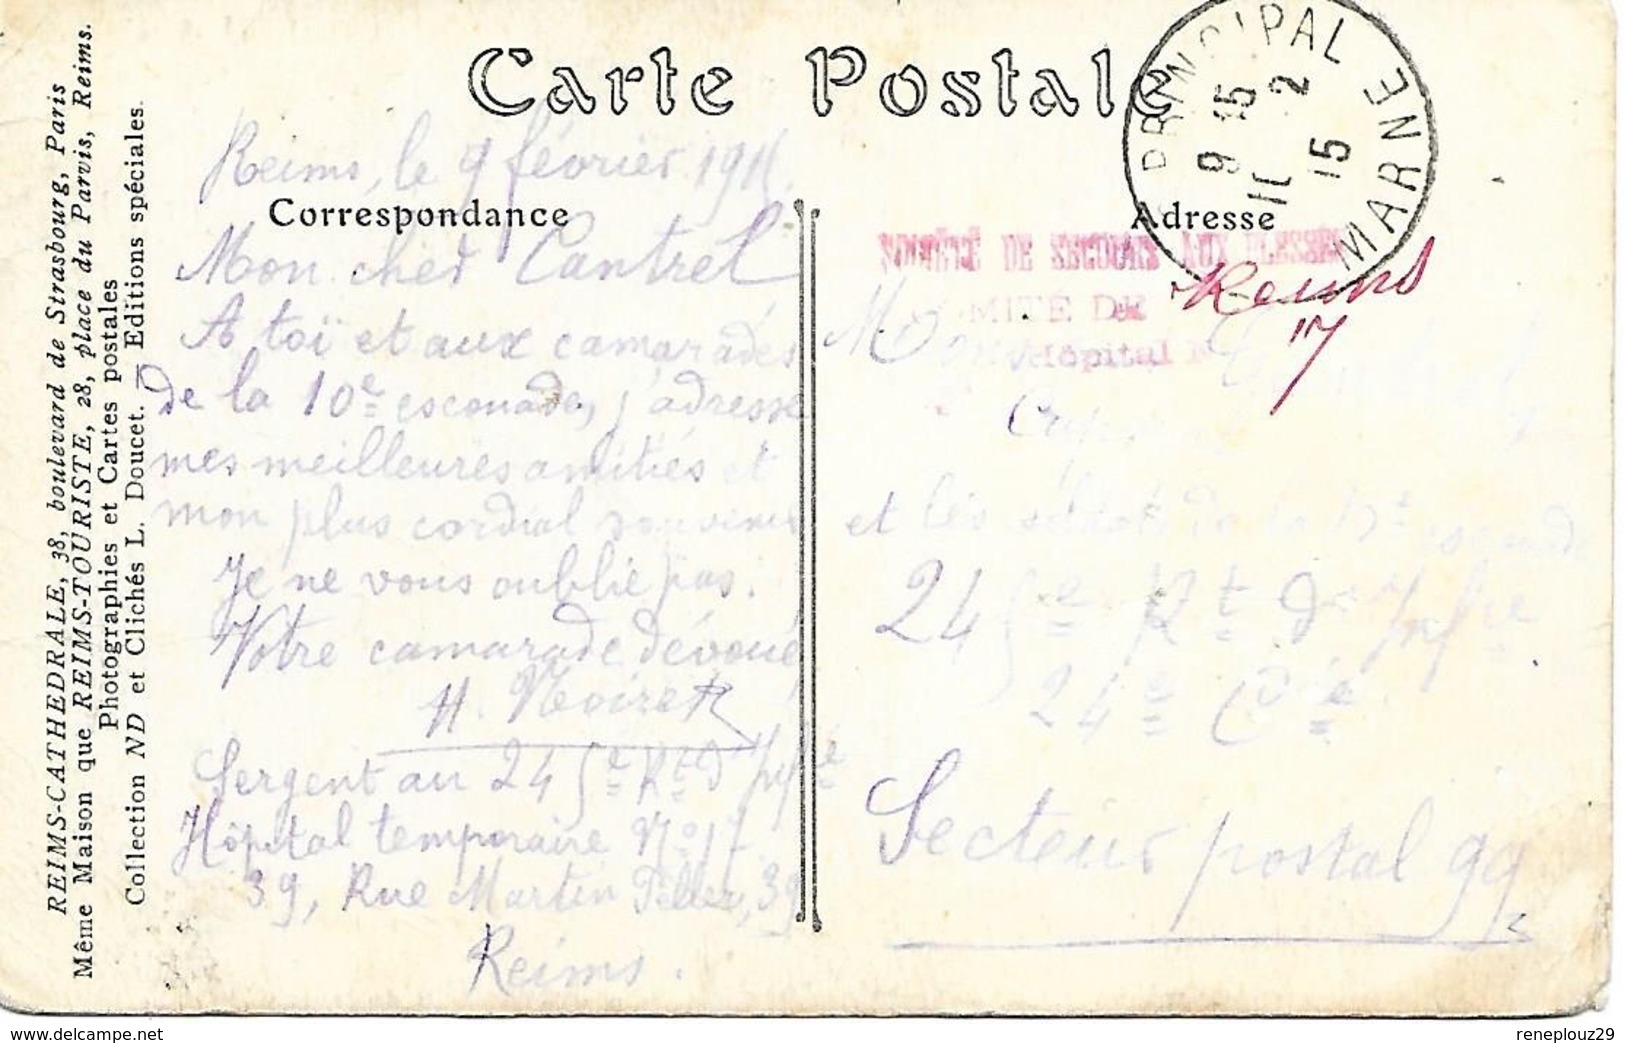 Carte Postale
Correspondance
Adresse
REIMS-CATHEDRALE, 38, boulevard de Strasbourg, Paris
Même Maison que REIMS-TOURISTE, 28, place du Parvis, Reims.
Photographies et Cartes postales
Collection ND et Clichés L. Doucet. Editions spéciales.
Reims, le 9 février
Mon cher Cantrel
A toï et aux camarades
de la 10e escouade, j'adresse
mes meilleures amitiés et
mon plus cordial souvenir
Je ne vous oublie pas.
Votre camarade dévoué
H. Noiret
Sergent au 245e Rt d'Infie
Hôpital temporaire No 17
39, Rue Martin Peller, 39
Reims.
PRINCIPAL MARNE
9 15
11 2
15
SOCIÉTÉ DE SECOURS AUX BLESSÉS
COMITÉ DE Reims
Hôpital N 17
et les de la escouade
245e Rt d'Infie
24e Cie
Secteur postal 99
www.delcampe.net
reneplouz29